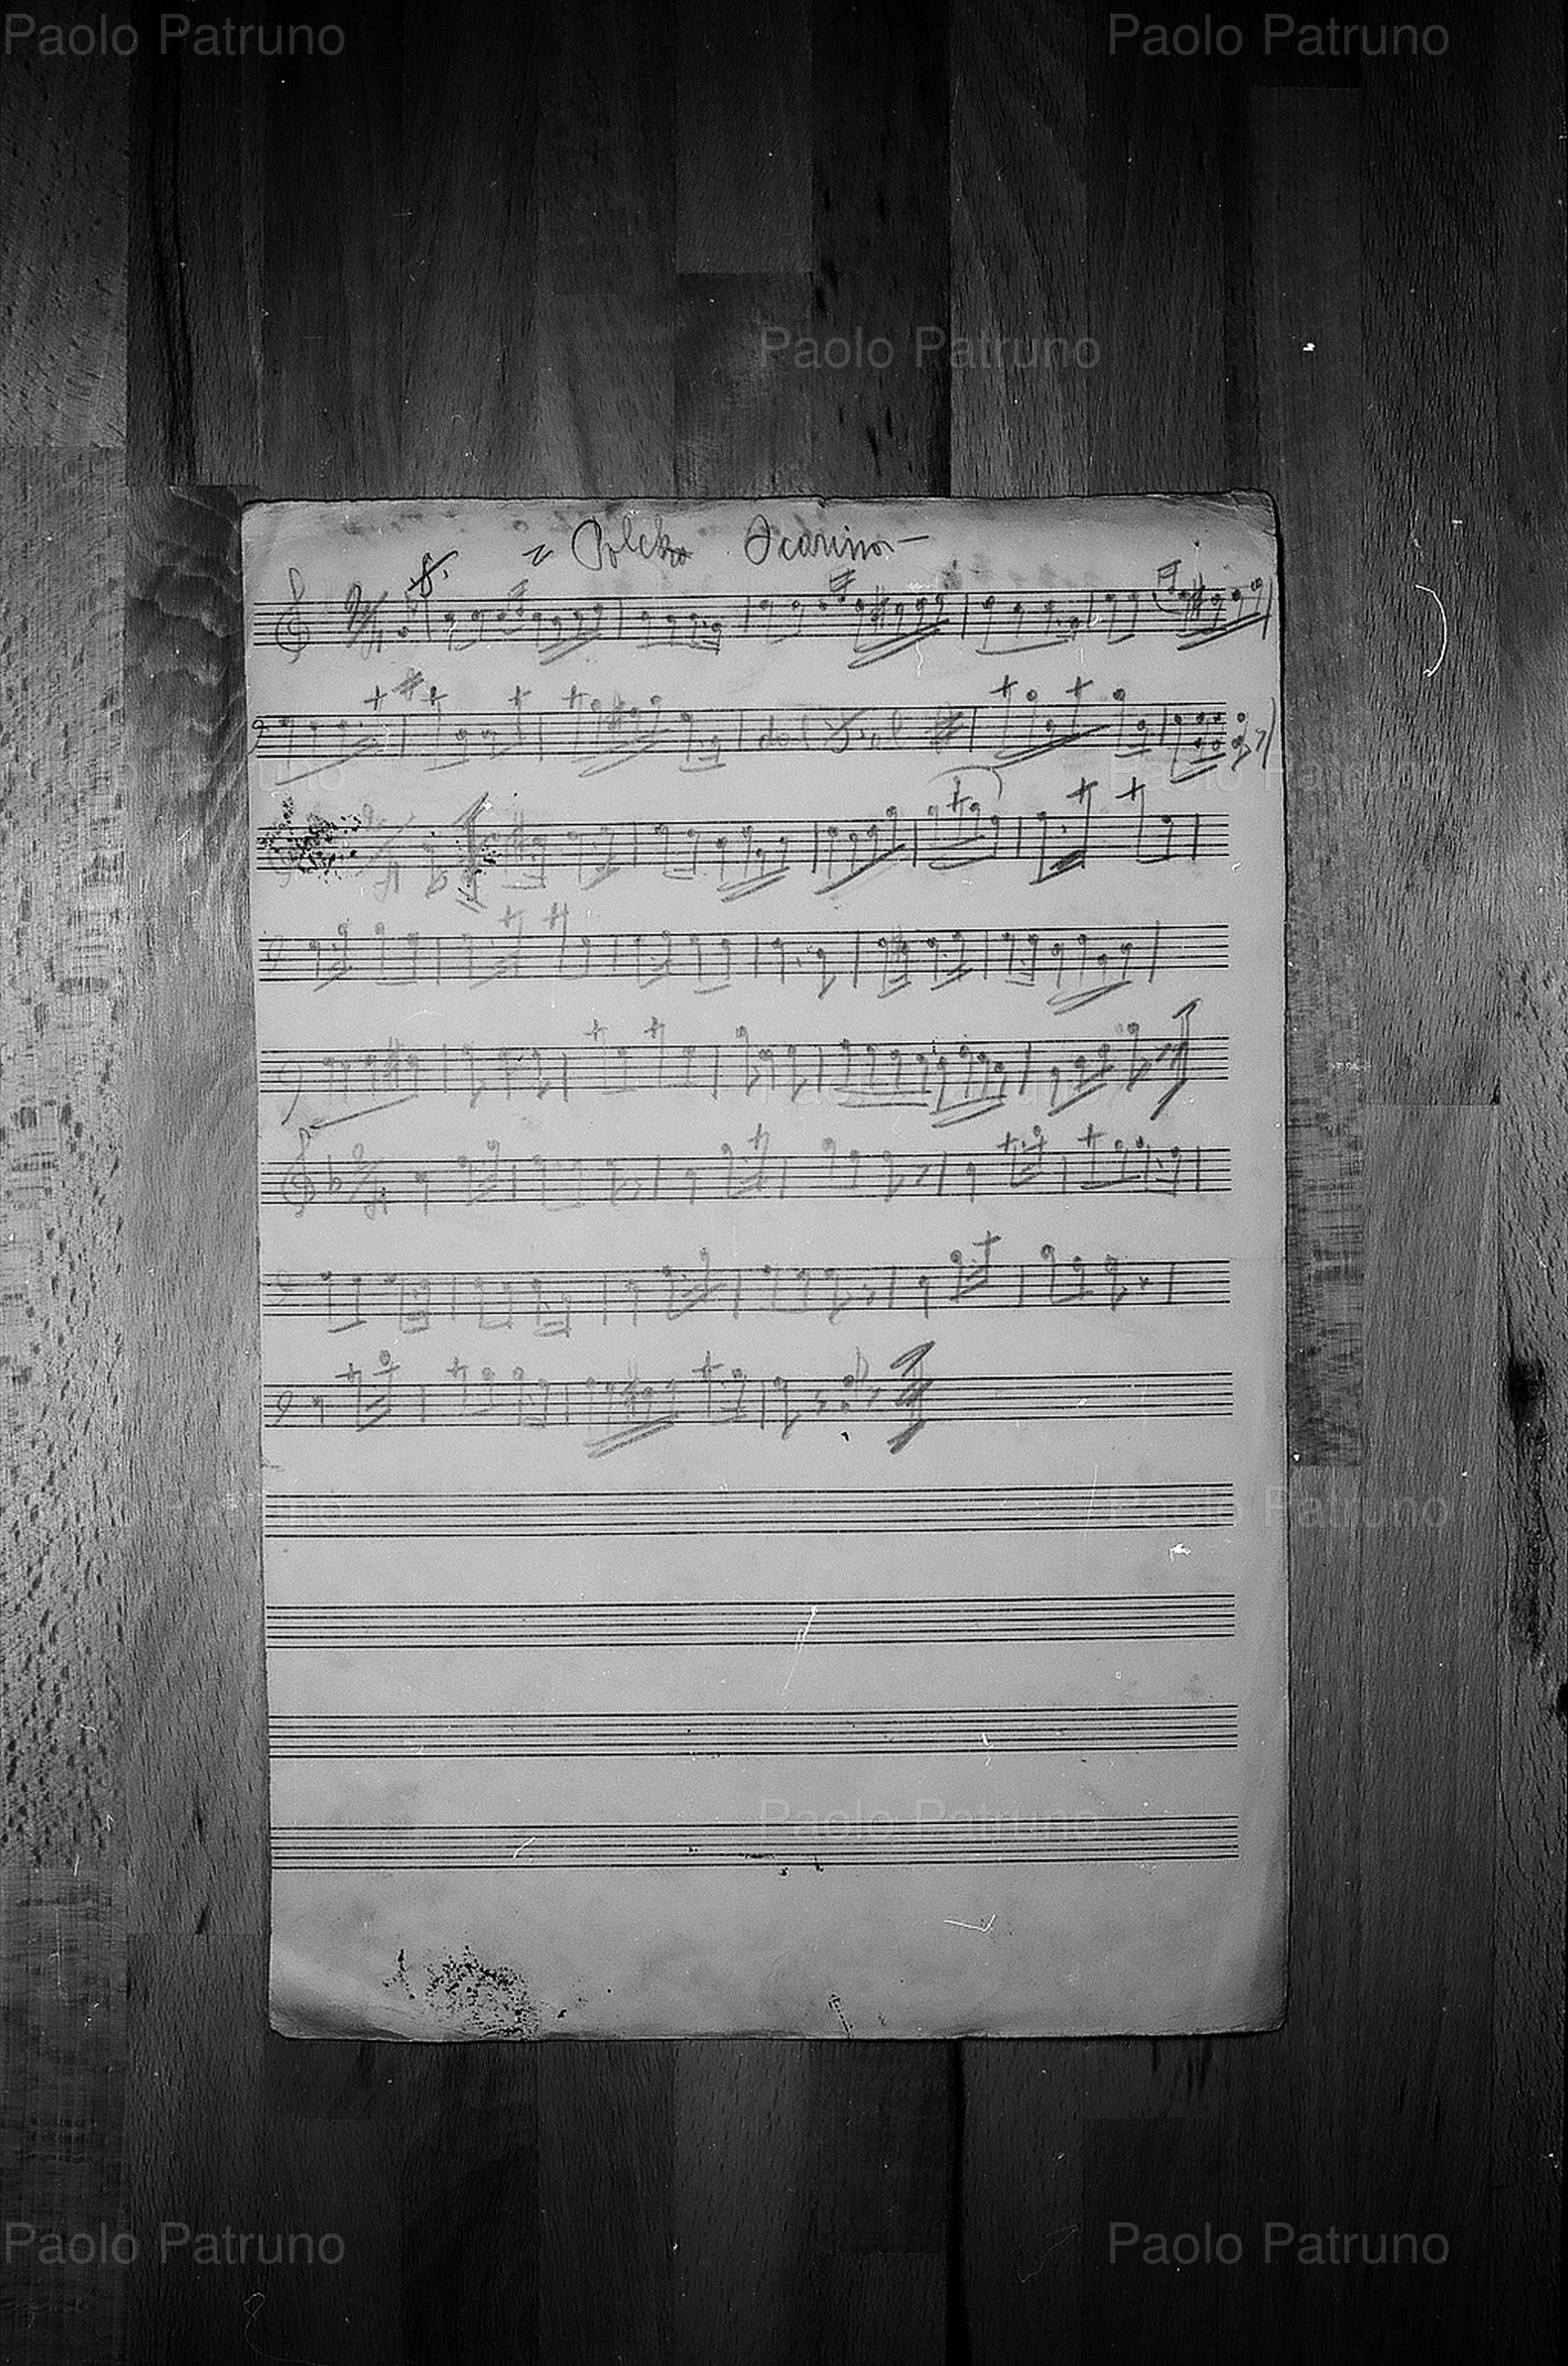 Paolo Patruno Paolo Patruno
Paolo Patruno
Polcka Ocarina
dal 𝄋 al
Patruno Patruno
Paolo Patruno
Patruno Paolo Patruno
Paolo Patruno
Paolo Patruno Paolo Patruno